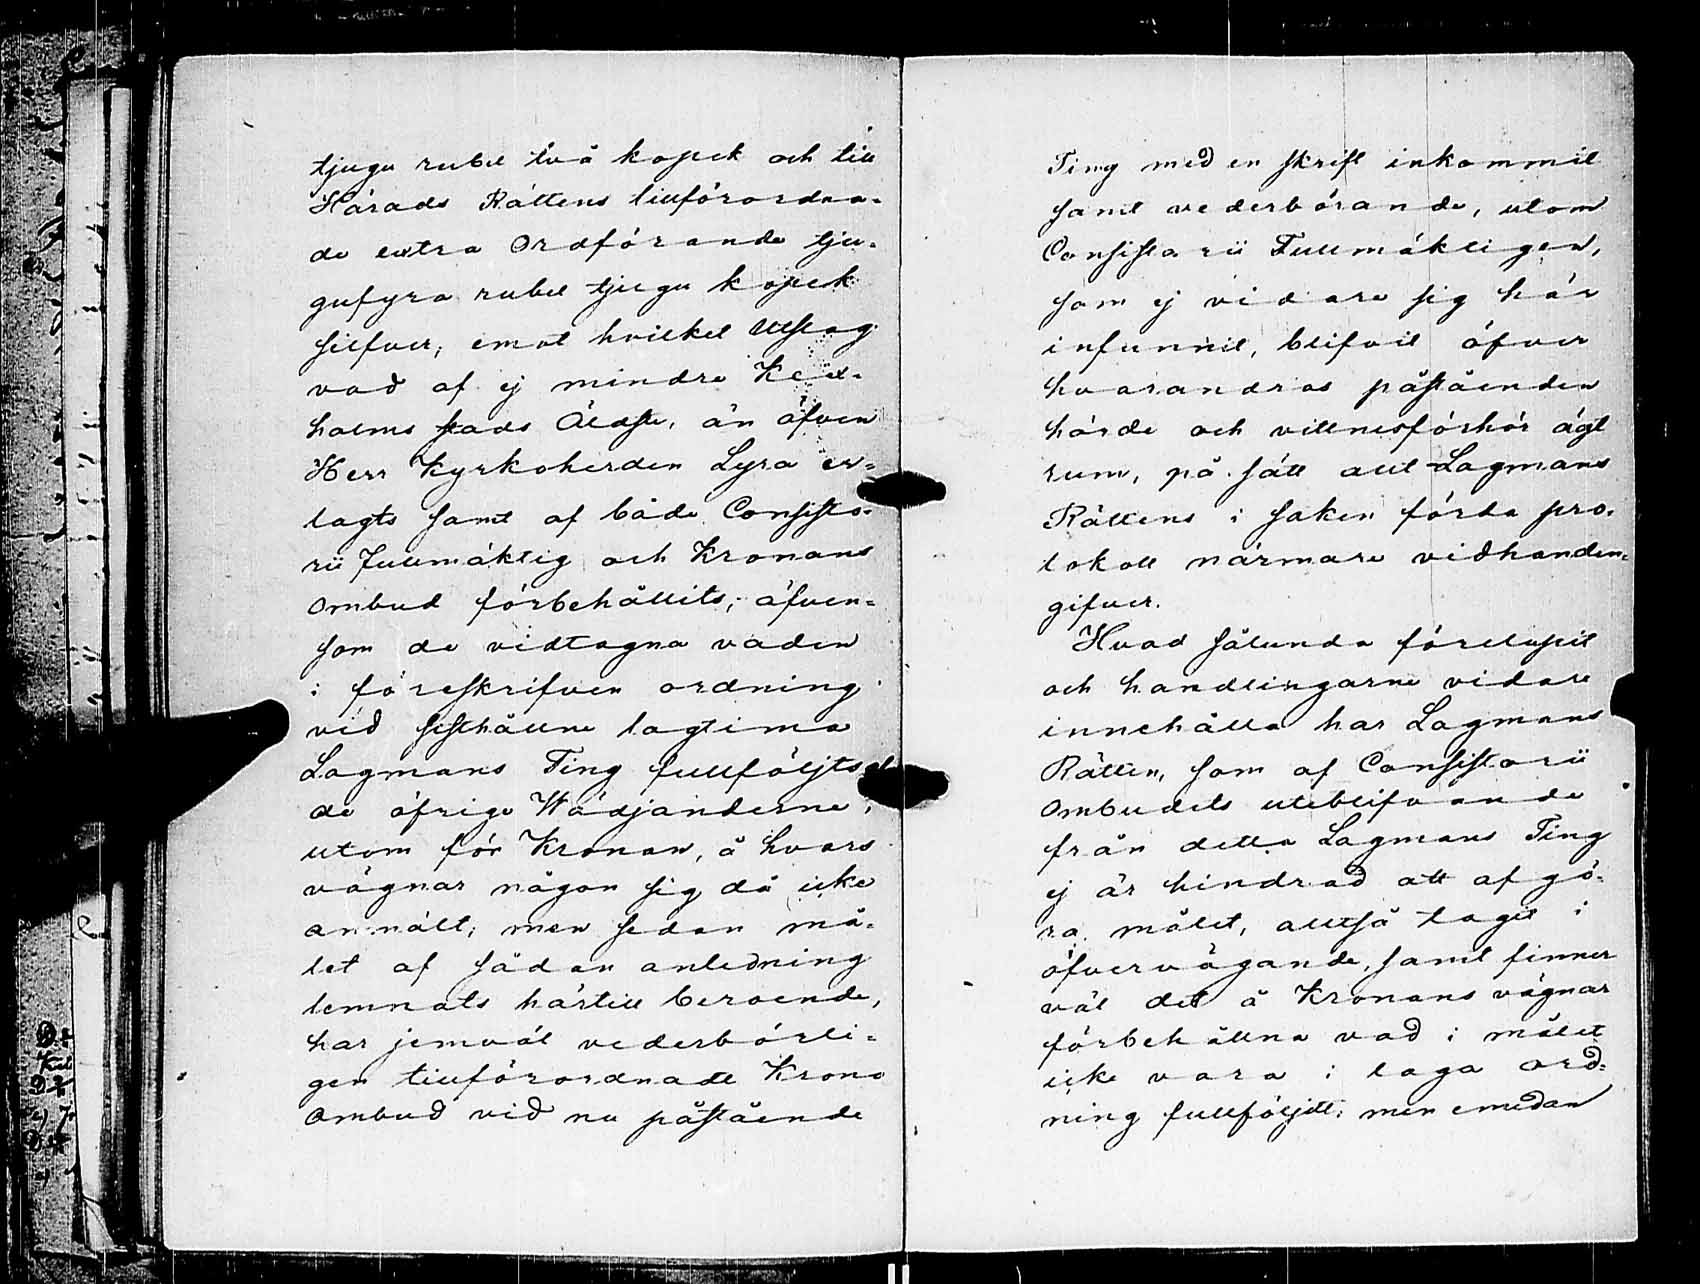 tjugu rubel två kopek och till
Härads Rättens tillförordna-
de extra Ordförande tju-
gufyra rubel tjugu kopek
silfver; emot hvilket Utslag
vad af ej mindre Kex-
holms stads Äldste, än äfven
Herr Kyrkoherden Lyra er-
lagts samt af både Consisto-
rii Fullmäktig och Kronans
ombud förbehållits; äfven-
som de vidtagna vaden
i föreskrifven ordning
vid sisthållne lagtima
Lagmans Ting fullföljts af
de öfrige Wädjanderne,
utom för Kronan, å hvars
vägnar någon sig då icke
anmält; men sedan må-
let af sådan anledning
lemnats härtill beroende,
har jemväl vederbörli-
gen tillförordnadt Krono
ombud vid nu påstående
Ting med en skrift inkommit
samt vederbörande, utom
Consistorii Fullmäktigen,
som ej vidare sig här
infunnit, blifvit öfver
hvarandras påståenden
hörde och vittnesförhör ägt
rum, på sätt allt Lagmans
Rättens i saken förda pro-
tokoll närmare vidhanden-
gifver.
Hvad sålunda förelupit
och handlingarne vidare
innehålla har Lagmans
Rätten, som af Consistorii
ombudets uteblifvande
från detta Lagmans Ting
ej är hindrad att afgö-
ra målet, alltså tagit i
öfvervägande, samt finner
väl det å Kronans vägnar
förbehållna vad i målet
icke vara i laga ord-
ning fullföljdt; men emedan